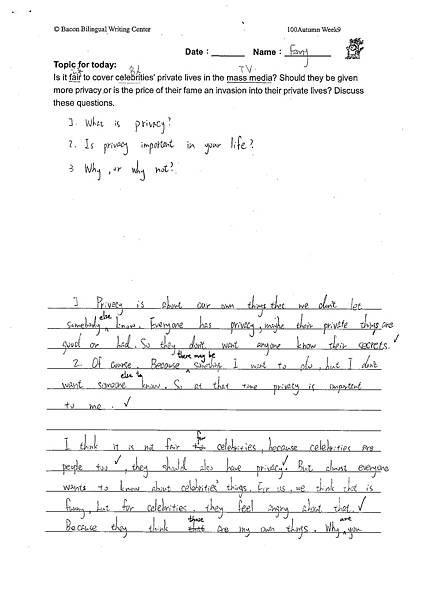 © Bacon Bilingual Writing Center 100Autumn Week9
Date : Name :
Topic for today:
TV
Is it fair to cover celebrities' private lives in the mass media? Should they be given
more privacy or is the price of their fame an invasion into their private lives? Discuss
these questions.
1. What is privacy?
2. Is privacy important in your life?
3 Why, or why not?
1 Privacy is about our own things that we don't let
else
somebody know. Everyone has privacy, maybe their private things are
good or bad. So they don't want anyone know their secrets. ✓
there may be
2. Of course. Because something I want to do, but I don't
else to
want someone know. So at that time privacy is important
to me. ✓
for
I think it is not fair to celebrities, because celebrities are
people too ✓, they should also have privacy. But almost everyone
wants to know about celebrities' things. For us, we think that is
funny, but for celebrities, they feel angry about that. ✓
those are
Because they think are my own things. Why you